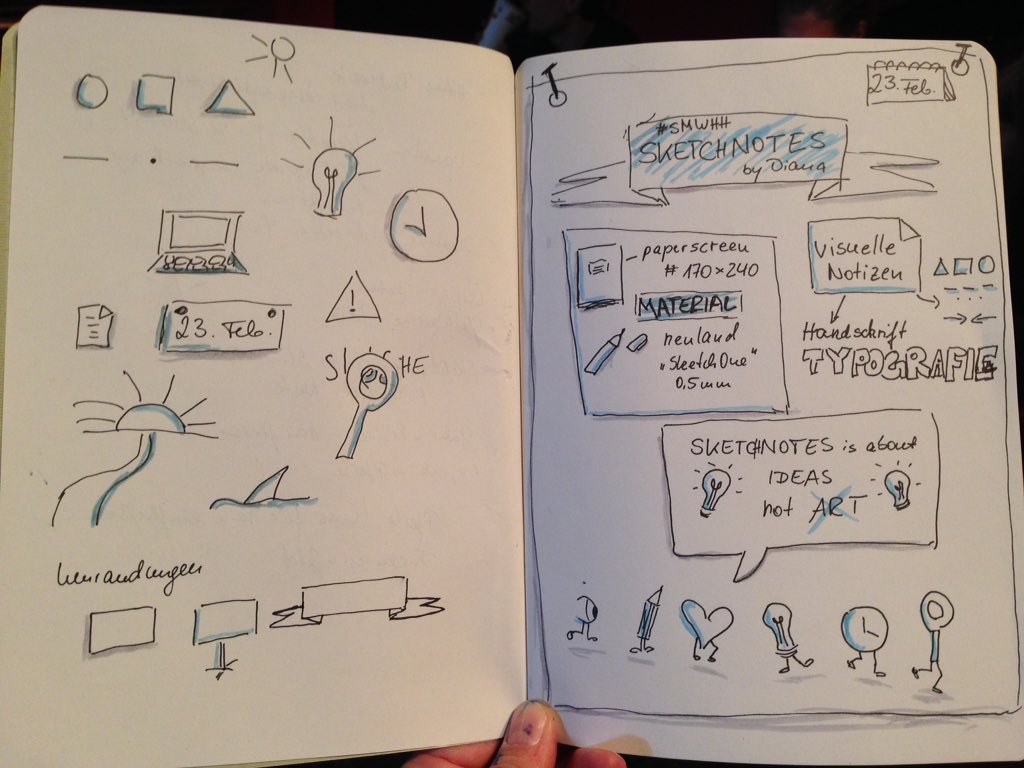 23. Feb.
S CHE
umrandungen
23. Feb.
#SMWHH
SKETCHNOTES
by Diana
paperscreen
# 170×240
MATERIAL
neuland
„SketchOne"
0,5mm
visuelle
Notizen
Handschrift
TYPOGRAFIE
SKETCHNOTES is about
IDEAS
not ART